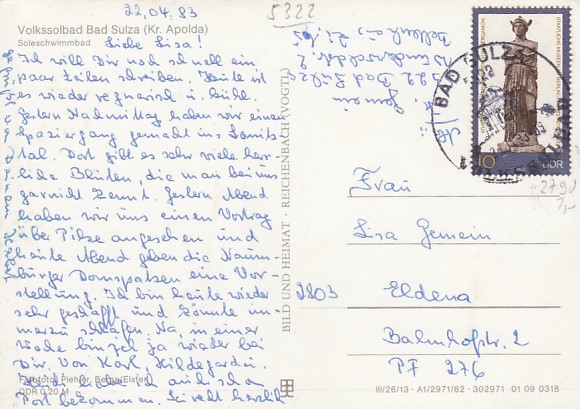 22.04.83
5322
Volkssolbad Bad Sulza (Kr. Apolda)
Soleschwimmbad
Liebe Lisa!
Ich will Dir noch schnell ein
paar Zeilen schreiben. Heute ist
es wieder regnerisch u. kühl.
Gestern Nachmittag haben wir einen
Spaziergang gemacht ins
tal. Dort gibt es sehr viele herr-
liche Blüten, die man bei uns
garnicht kennt. Gestern Abend
haben wir uns einen Vortrag
über Pilze angesehen und
heute Abend geben die Naum-
burger Domspatzen eine Vor-
stellung. Ich bin heute wieder
sehr geschafft und könnte im-
merzu schlafen. Na, in einer
Woche bin ich ja wieder bei
Dir. Von Karl, Hildegard u.
auch schon
Post bekommen. Sei recht herzlich
Farbfoto: Piehler, Berga/Elster
DDR 0,20 M
BILD UND HEIMAT · REICHENBACH (VOGTL)
Gemein
5322 Bad Sulza
BAD SULZA
5322
DDR
10
2790
1,-
Frau
Lisa Gemein
2203 Eldena
Bahnhofstr. 2
PF 276
III/26/13 · A1/2971/82 · 302971 01 09 0318